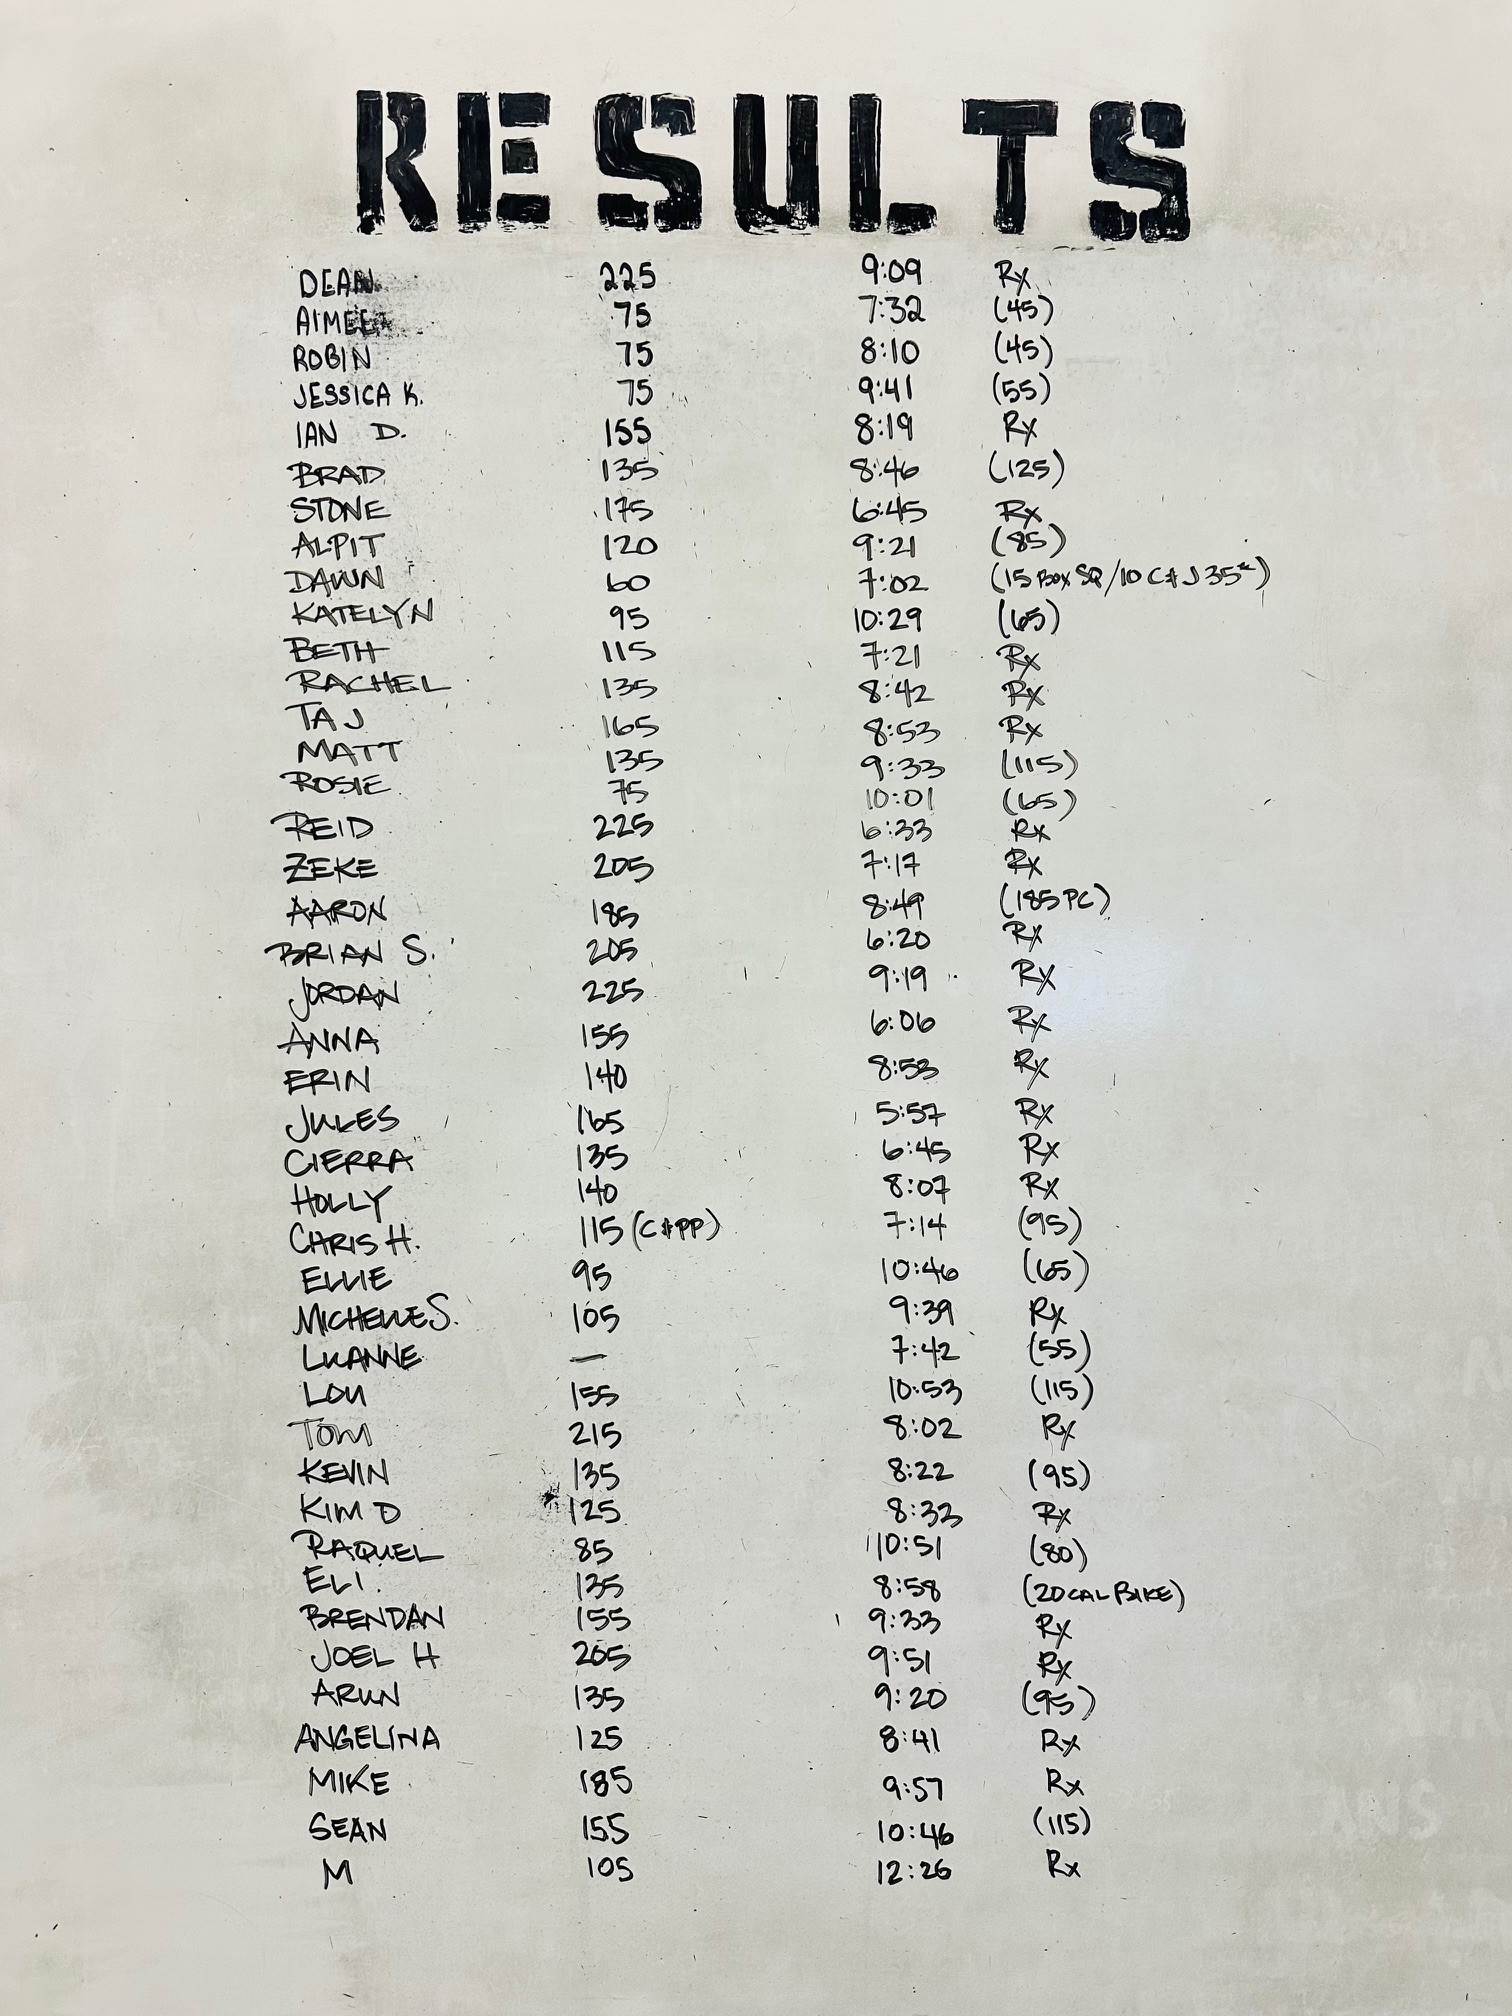 RESULTS
DEAN 225 9:09 Rx
AIMEE 75 7:32 (45)
ROBIN 75 8:10 (45)
JESSICA K. 75 9:41 (55)
IAN D. 155 8:19 Rx
BRAD 135 8:46 (125)
STONE 175 6:45 Rx
ALPIT 120 9:21 (85)
DAWN 60 7:02 (15 BOX SQ/10 C&J 35#)
KATELYN 95 10:29 (65)
BETH 115 7:21 Rx
RACHEL 135 8:42 Rx
TAJ 165 8:53 Rx
MATT 135 9:33 (115)
ROSIE 75 10:01 (65)
REID 225 6:33 Rx
ZEKE 205 7:17 Rx
AARON 185 8:49 (185 PC)
BRIAN S. 205 6:20 Rx
JORDAN 225 9:19 Rx
ANNA 155 6:06 Rx
ERIN 140 8:53 Rx
JULES 165 5:57 Rx
CIERRA 135 6:45 Rx
HOLLY 140 8:07 Rx
CHRIS H. 115 (C&PP) 7:14 (95)
ELLIE 95 10:46 (65)
MICHELLE S. 105 9:39 Rx
LUANNE — 7:42 (55)
LOU 155 10:53 (115)
TOM 215 8:02 Rx
KEVIN 135 8:22 (95)
KIM D 125 8:33 Rx
RAQUEL 85 10:51 (80)
ELI. 135 8:58 (20 CAL BIKE)
BRENDAN 155 9:33 Rx
JOEL H 205 9:51 Rx
ARUN 135 9:20 (95)
ANGELINA 125 8:41 Rx
MIKE 185 9:57 Rx
SEAN 155 10:46 (115)
M 105 12:26 Rx